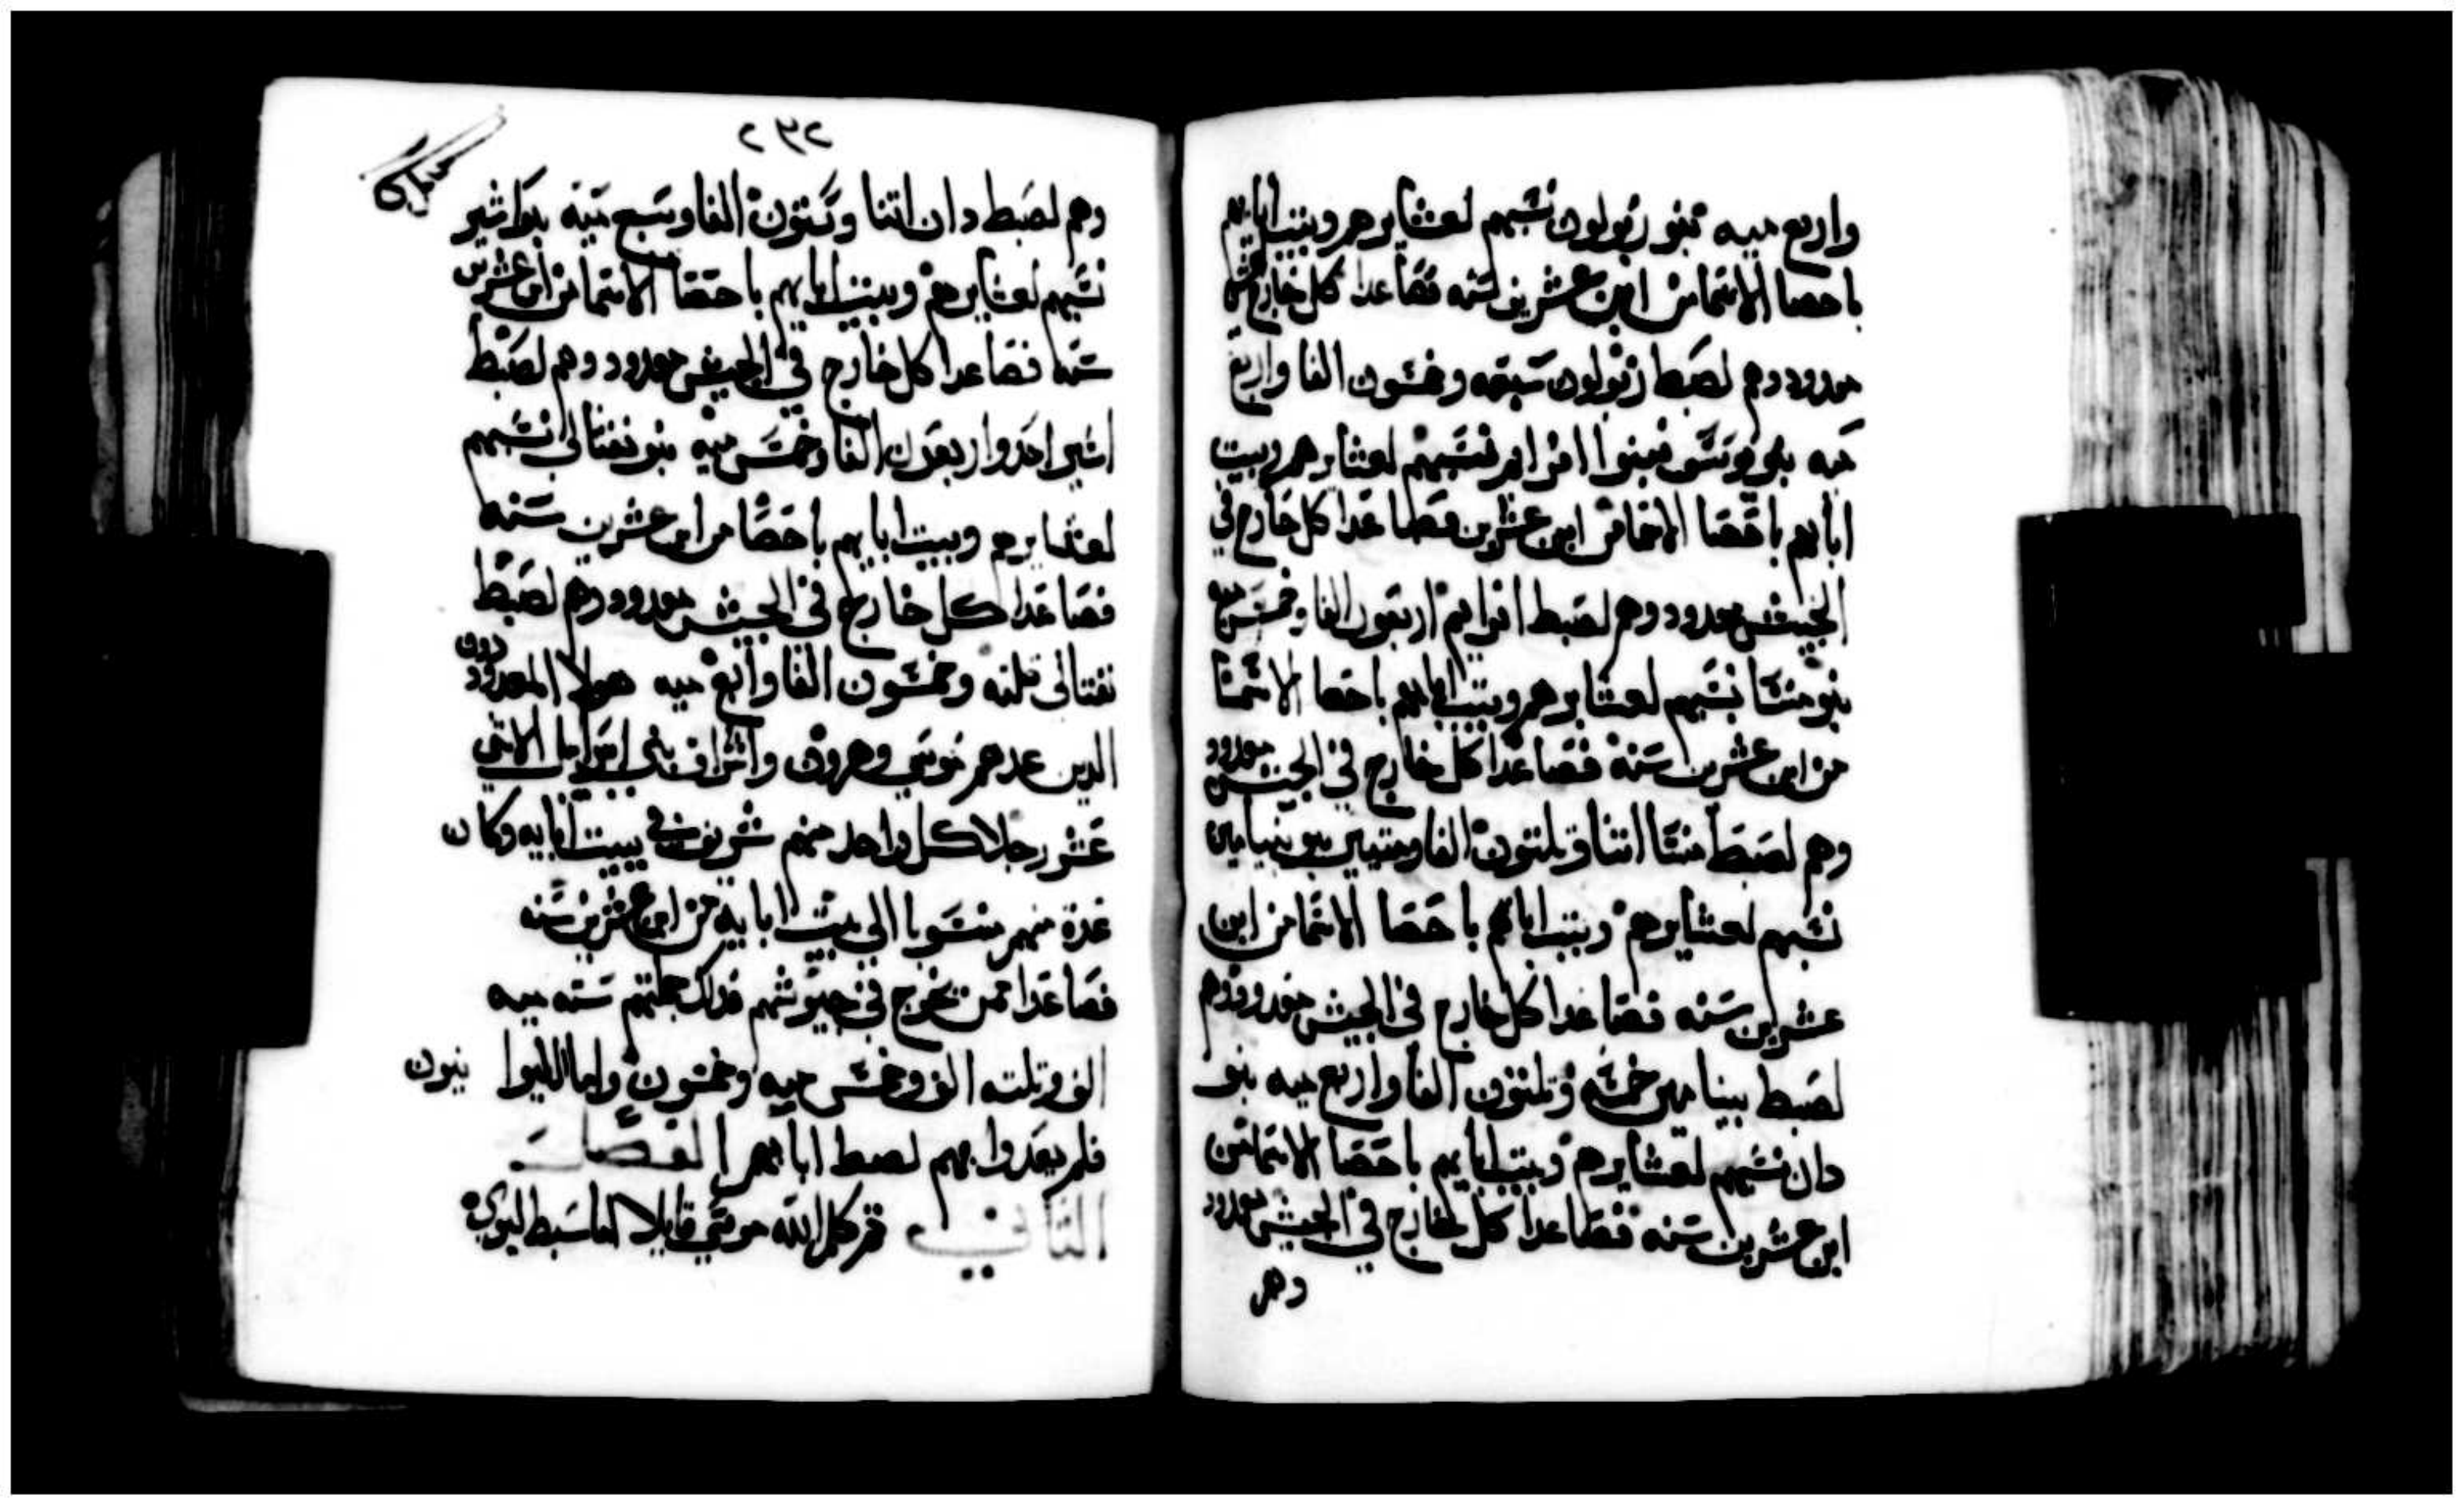 واربع ميه بنو زبولون نسبهم لعشايرهم وبيت ابايهم
باحصا الاسما من ابن عشرين سنه فصاعدا كل خارج
معدود وهم لصبط زبولون سبعه وخمسون الفا واربع
ميه بنو يوسف فبنوا افرايم نسبهم لعشايرهم وبيت
ابايهم باحصا الاسما من ابن عشرين فصاعدا كل خارج في
الجيش معدود وهم لصبط افرايم اربعون الفا وخمس ميه
بنو منسا نسبهم لعشايرهم وبيت ابايهم باحصا الاسما
من ابن عشرين سنه فصاعدا كل خارج في الجيش معدود
وهم لصبط منسا اتنا وتلتون الفا وميتين بنو بنيامين
نسبهم لعشايرهم وبيت ابايهم باحصا الاسما من ابن
عشرين سنه فصاعدا كل خارج في الجيش معدود وهم
لصبط بنيامين خمسه وتلتون الفا واربع ميه بنو
دان نسبهم لعشايرهم وبيت ابايهم باحصا الاسما من
ابن عشرين سنه فصاعدا كل خارج في الجيش معدود
وهم
٢٣٢
وهم لصبط دان اتنا وستون الفا وسبع ميه بنو اشير
نسبهم لعشايرهم وبيت ابايهم باحصا الاسما من ابن عشرين
سنه فصاعدا كل خارج في الجيش معدود وهم لصبط
اشير احد واربعون الفا وخمس ميه بنو نفتالي نسبهم
لعشايرهم وبيت ابايهم باحصا من ابن عشرين سنه
فصاعدا كل خارج في الجيش معدود وهم لصبط
نفتالي تلته وخمسون الفا واربع ميه هولا المعدودون
الدين عدهم موسي وهرون واشراف بني اسراييل الاتني
عشر رجلا كل واحد منهم شريف في بيت ابايه وكان
عدة منهم منسوبا الي بيت ابايه من ابن عشرين سنه
فصاعدا ممن يخرج في جيوشهم فدلك جملتهم سته ميه
الف وتلته الف وخمس ميه وخمسون واما الليوانيون
فلم يعدوا بهم لصبط ابايهم الفصل
التاني تم كلم الله موسي قايلا اما سبط ليوي